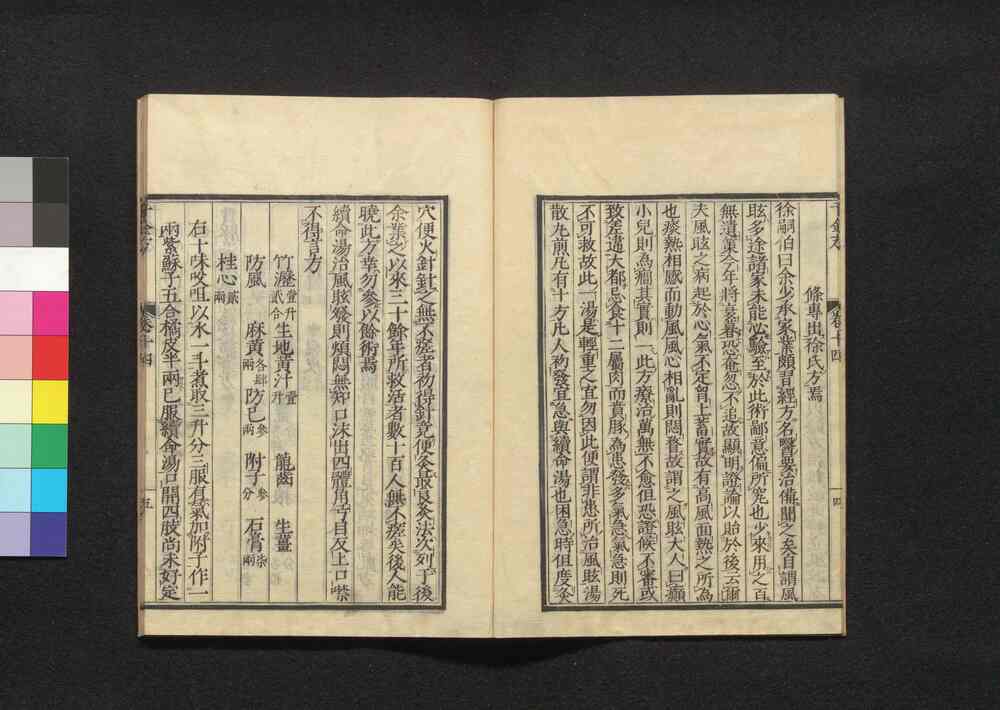 條專出徐氏方焉
徐嗣伯曰余少承家業頗習經方名醫要治備聞之矣自謂風
眩多途諸家未能必驗至於此術鄙意偏所究也少來用之百
無遺策今年將衰暮恐奄忽不追故顯明證論以貽於後云爾
夫風眩之病起於心氣不定胷上蓄實故有高風面熱之所為
也痰熱相感而動風風心相亂則悶瞀故謂之風眩大人曰癲
小兒則為癇其實則一此方療治萬無不愈但恐證候不審或
致差違大都忌食十二屬肉而賁豚為患發多氣急氣急則死
不可救故此一湯是輕重之宜勿因此便謂非患所治風眩湯
散丸煎凡有十方凡人初發宜急與續命湯也困急時但度灸
四
穴便火針針之無不瘥者初得針竟便灸最良灸法次列于後
余業之以來三十餘年所救活者數十百人無不瘥矣後人能
曉此方幸勿參以餘術焉
續命湯治風眩發則煩悶無知口沫出四體角弓目反上口噤
不得言方
竹瀝壹升貳合 生地黃汁壹升 龍齒 生薑
防風 麻黃各肆兩 防己參兩 附子參分 石膏柒兩
桂心貳兩
右十味㕮咀以水一斗煮取三升分三服有氣加附子作一
兩紫蘇子五合橘皮半兩已服續命湯口開四肢尚未好定
卷十四
五